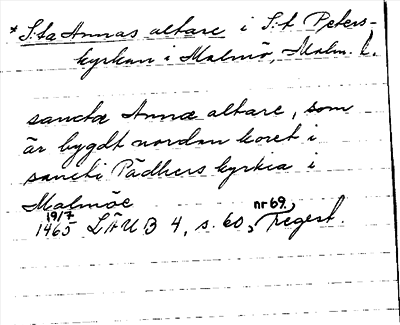 * S:ta Annas altare i S:t Peters-
kyrkan i Malmö, Malm. l.
sancta Annæ altare, som
är bygdt nordan koret i
sancti Pädhers kyrkia i
Malmöe
19/7 1465 LÄUB 4, s. 60, nr 69, Regest.